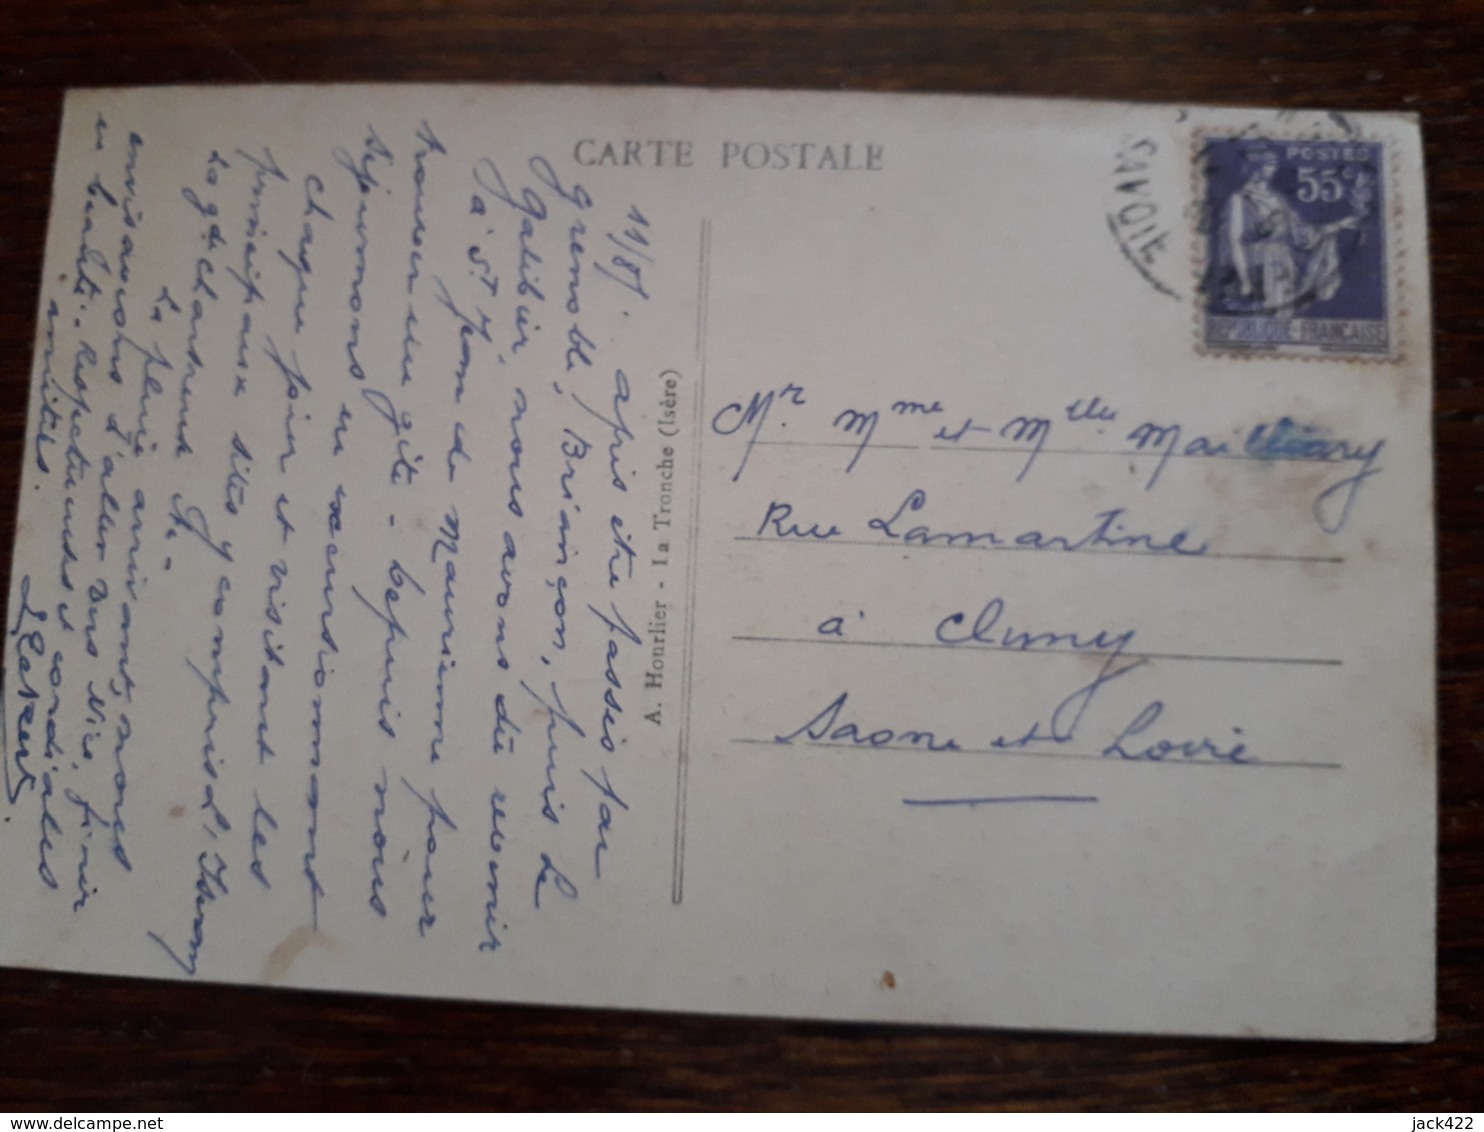 CARTE POSTALE
11/8/
après être passés par
Grenoble, Briançon, puis le
Galibier, nous avons dû revenir
à St Jean de Maurienne pour
trouver un gîte - depuis nous
séjournons en excursionnant
chaque jour et visitant les
principaux sites y compris l'
La gde Chartreuse
La pluie arrivant, nous
envisageons d'aller vers Nice, finir
en beauté. Respectueuses et cordiales
amitiés.
A. Hourlier - La Tronche (Isère)
SAVOIE
POSTES
55c
REPUBLIQUE-FRANÇAISE
Mr. Mme et Mlle
Rue Lamartine
à Cluny
Saone et Loire
jack422